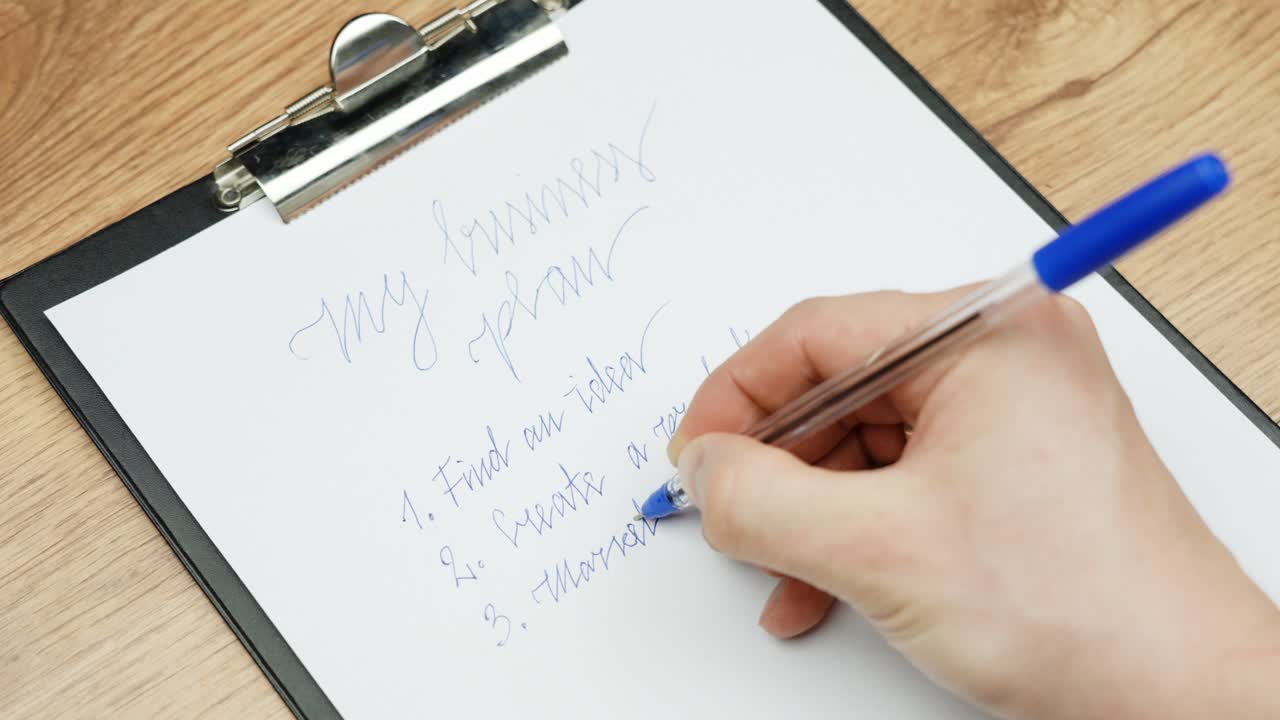 My business
plan
1. Find an idea
2. Create a
3. Market